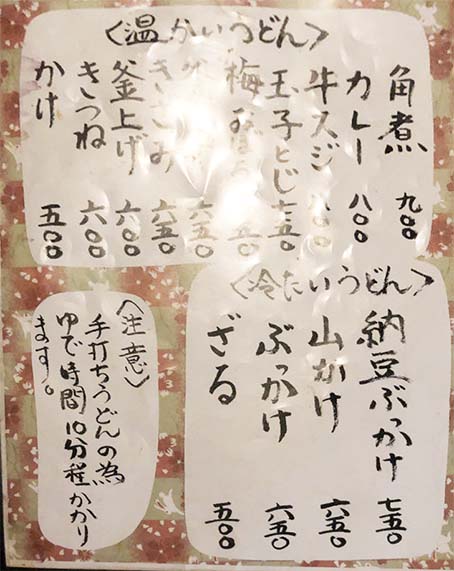 〈温かいうどん〉
角煮 九〇〇
カレー 八〇〇
牛スジ 八〇〇
玉子とじ 七五〇
梅
六五〇
きざみ 六五〇
釜上げ 六〇〇
きつね 六〇〇
かけ 五〇〇
〈冷たいうどん〉
納豆ぶっかけ 七五〇
山かけ 六五〇
ぶっかけ 六五〇
ざる 五〇〇
〈注意〉
手打ちうどんの為
ゆで時間10分程かかり
ます。